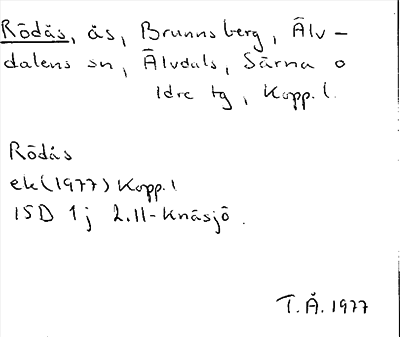 Rödås, ås, Brunnsberg, Älv-
dalens sn, Älvdals, Särna o
Idre tg, Kopp. l.
Rödås
ek (1977) Kopp. l
15D 1j 2.II-Knäsjö.
T.Å. 1977